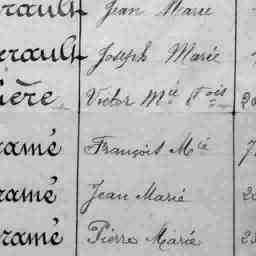 rault Jean Marie
érault Joseph Marie
ière Victor Mie Fois
ramé François Mie 7
ramé Jean Marie 2
ramé Pierre Marie 2